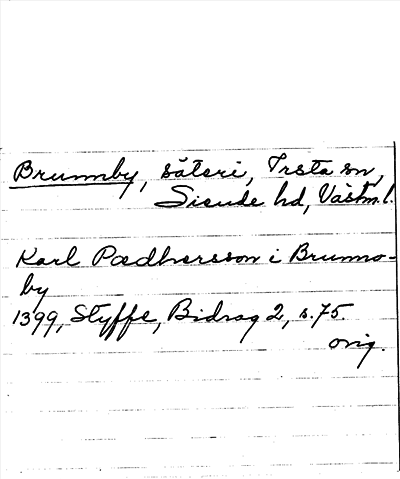 Brunnby, säteri, Irsta sn,
Siende hd, Västm.l.
Karl Pædhersson i Brunno-
by
1399, Styffe, Bidrag 2, s. 75.
orig.